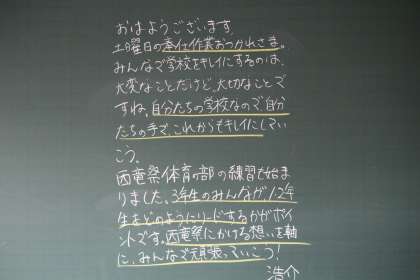 おはようございます。
土曜日の奉仕作業おつかれさま。
みんなで学校をキレイにするのは、
大変なことだけど、大切なことで
すね。自分たちの学校なので自分
たちの手で、これからもキレイにしてい
こう。
西竜祭体育の部の練習も始ま
りました。3年生のみんなが1.2年
生をどのようにリードするかがポイ
ントです。西竜祭にかける想いを軸
に、みんなで頑張っていこう!
浩介